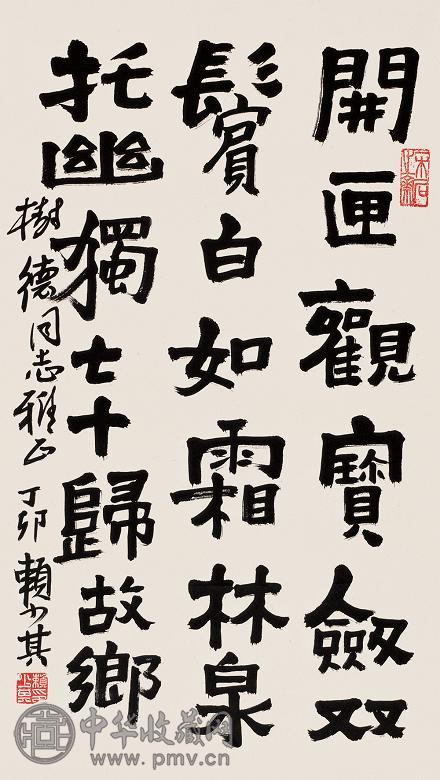 開匣觀寶劔双
鬢白如霜林泉
托幽獨七十歸故鄉
樹德同志雅正 丁卯 賴少其
中华收藏网
www.pmv.cn